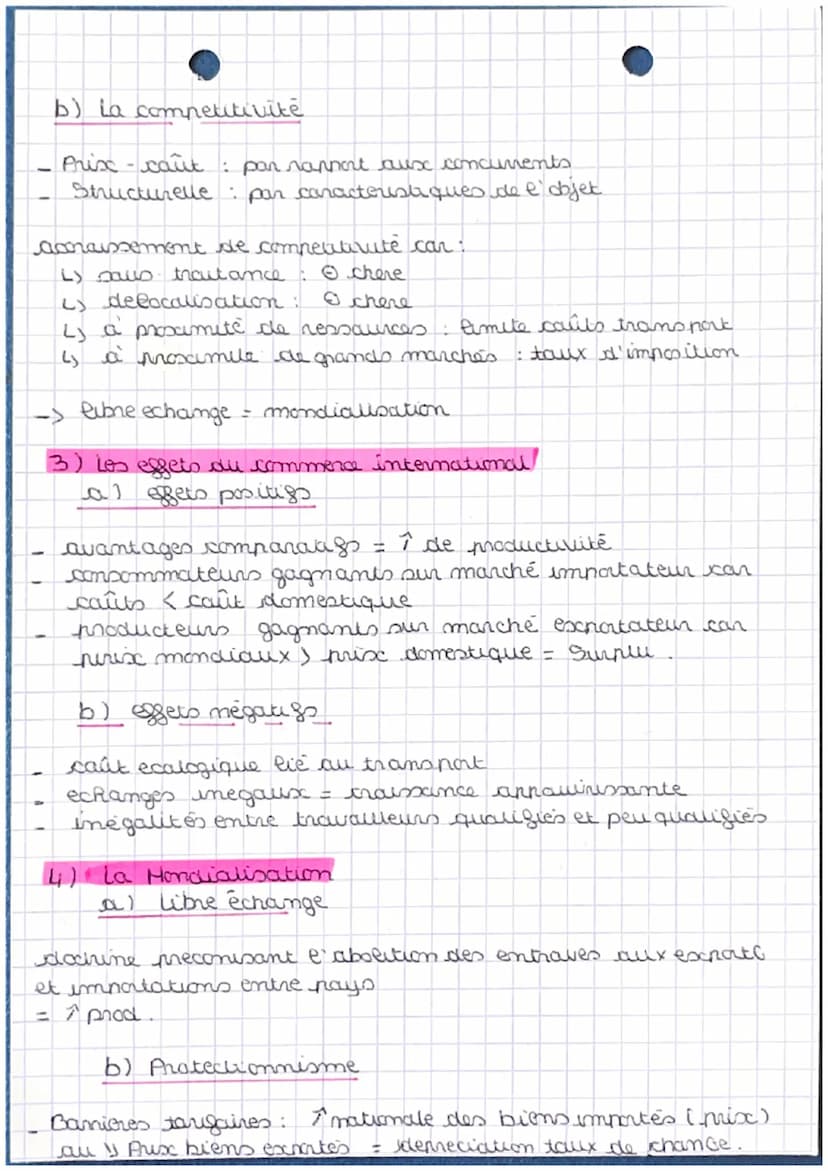 b) La competitivité
- Prix-coût : par rapport aux concurrents
- Structurelle : par caracteristiques de l'objet
accroissement de competitivité car :
↳ sous traitance : ⊖ chere
↳ delocalisation : ⊖ chere
↳ à proximité de ressources : limite coûts transport
↳ à proximite de grands marchés : taux d'imposition
-> libre echange = mondialisation
3) Les effets du commerce international
a) effets positifs
- avantages comparatifs = ↑ de productivité
- consommateurs gagnants sur marché importateur car
coûts < coût domestique
- producteurs gagnants sur marché exportateur car
prix mondiaux > prix domestique = Surplu.
b) effets négatifs
- coût ecologique lié au transport
- echanges inegaux = croissance appauvrissante
- inégalités entre travailleurs qualifiés et peu qualifiés
4) La Mondialisation
a) Libre échange
doctrine preconisant l'abolition des entraves aux export°
et importations entre pays
= ↑ prod.
b) Protectionnisme
- Barrieres tarifaires : ↑ nationale des biens importés (prix)
ou ↘ Prix biens exportés = depreciation taux de change.